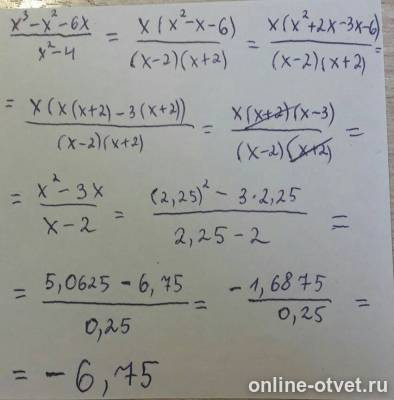 (x³-x²-6x)/(x²-4) = (x(x²-x-6))/((x-2)(x+2)) = (x(x²+2x-3x-6))/((x-2)(x+2)) =
= (x(x(x+2)-3(x+2)))/((x-2)(x+2)) = (x(x+2)(x-3))/((x-2)(x+2)) =
= (x²-3x)/(x-2) = ((2,25)²-3·2,25)/(2,25-2) =
= (5,0625-6,75)/(0,25) = (-1,6875)/(0,25) =
= -6,75
online-otvet.ru